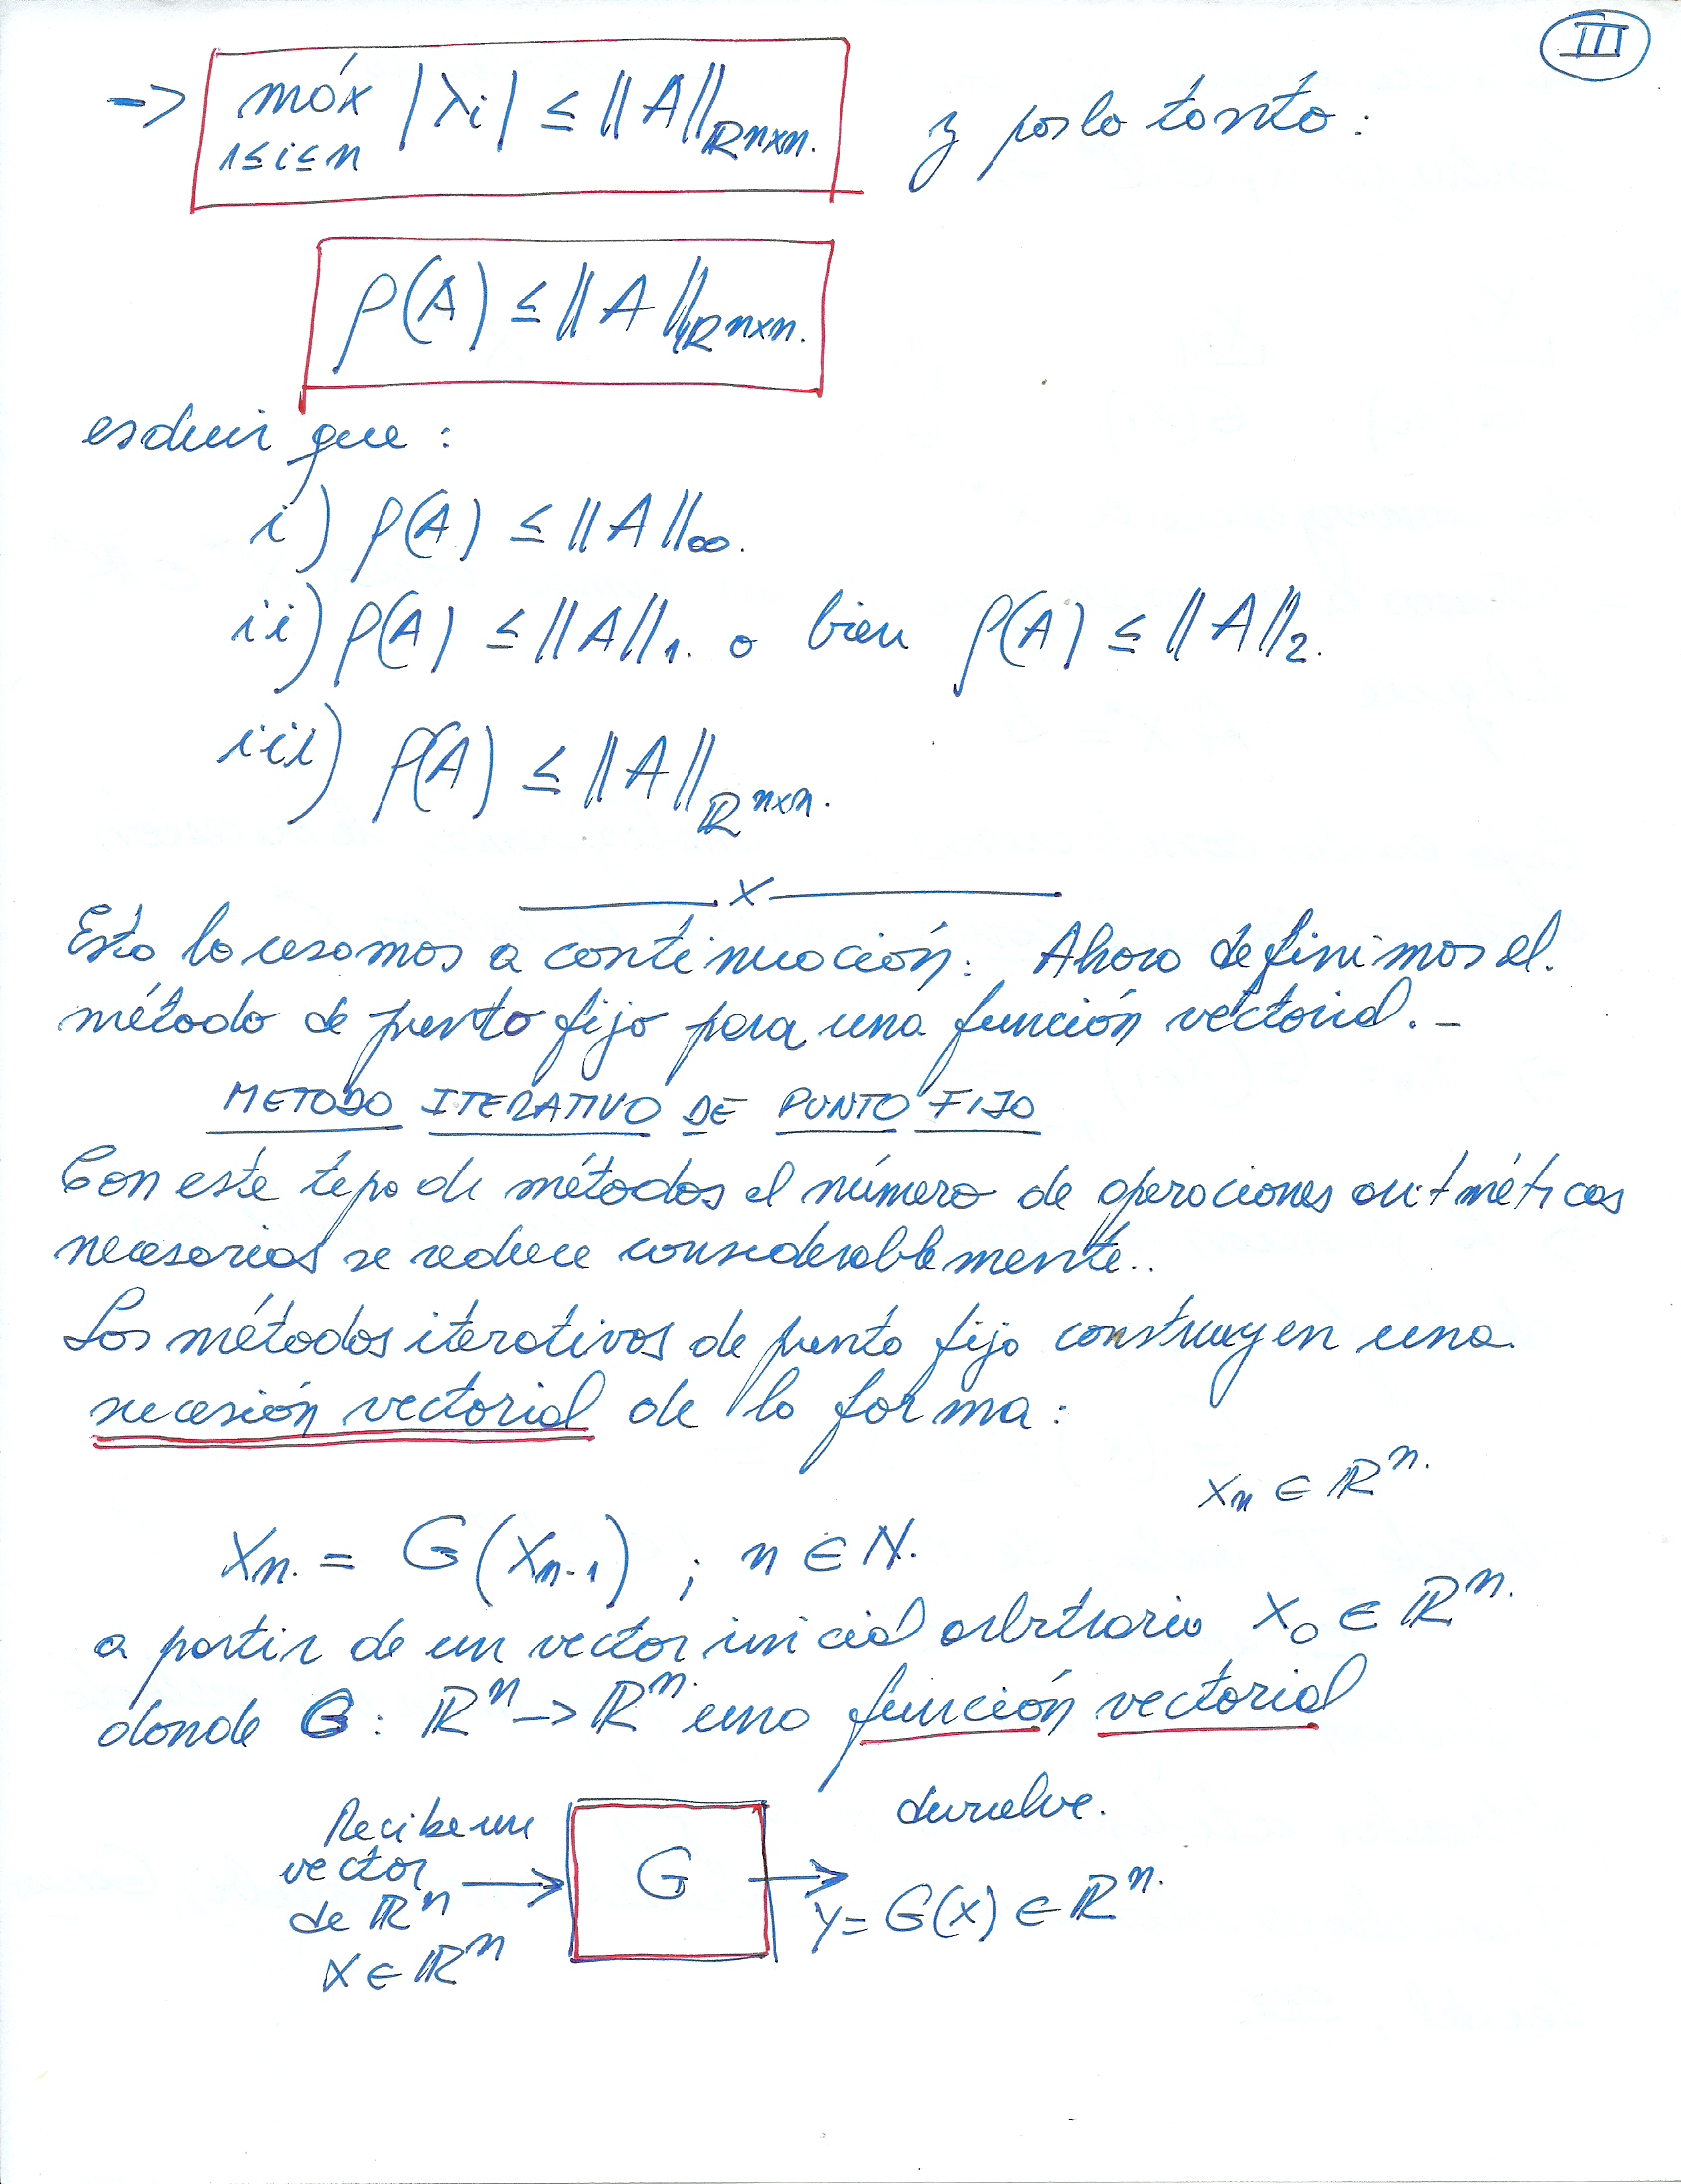 III
-> máx |λi| ≤ ||A||ℝnxn. y por lo tanto:
1≤i≤n
ρ(A) ≤ ||A||ℝnxn.
es decir que:
i) ρ(A) ≤ ||A||∞.
ii) ρ(A) ≤ ||A||1. o bien ρ(A) ≤ ||A||2.
iii) ρ(A) ≤ ||A||ℝnxn.
x
Esto lo usamos a continuación: Ahora definimos el.
método de punto fijo para una función vectorial. -
METODO ITERATIVO DE PUNTO FIJO
Con este tipo de métodos el número de operaciones aritméticas
necesarias se reduce considerablemente..
Los métodos iterativos de punto fijo construyen una.
sucesión vectorial de la forma:
xn ∈ ℝn.
Xn. = G(Xn-1) ; n ∈ N.
a partir de un vector inicial arbitrario X0 ∈ ℝn.
donde G: ℝn -> ℝn. una función vectorial
Recibe un
vector
de ℝn
X ∈ ℝn
G
devuelve.
Y = G(X) ∈ ℝn.